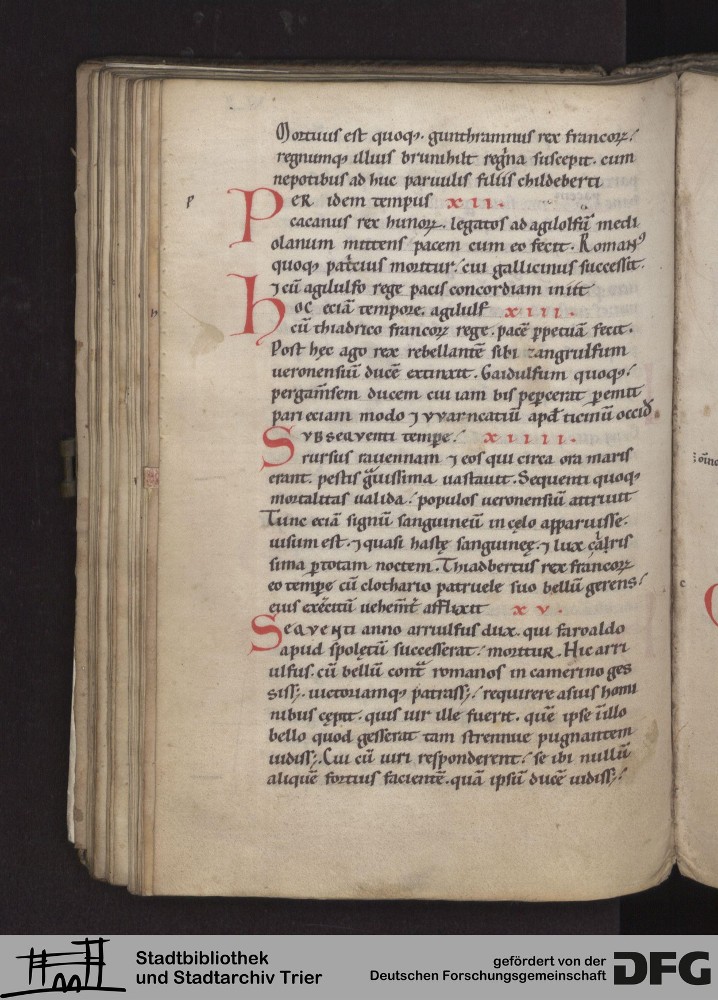 Mortuus est quoq;. gunthramnus rex francorꝝ/
regnumq; illius brunihilt regina suscepit. cum
nepotibus ad huc paruulis filiis childeberti
P
PER idem tempus XII.
cacanus rex hunorꝝ. legatos ad agilolfū medi
olanum mittens pacem cum eo fecit. Roman᷒
quoq; patcius moritur/ cui gallicinus successit.
⁊ cū agilulfo rege pacis concordiam iniit
hoc eciā tempore. agilulf XIII.
cū thiadrico francorꝝ rege. pacē ꝑpetuā fecit.
Post hęc ago rex rebellantē sibi zangrulfum
ueronensiū ducē extinxit. Gaidulfum quoq;/
pergam̄sem ducem cui iam bis peꝑcerat ꝑemit
pari eciam modo ⁊ vvarncatiū apđ ticinū occiđ.
SVBSEQVENTI tempe/ XIIII.
rursus rauennam ⁊ eos qui circa ora maris
erant. pestis gͣuissima uastauit. Sequenti quoq;
mortalitas ualida/ populos ueronensiū attriuit
Tunc eciā signū sanguineū in cęlo apparuisse.
uisum est. ⁊ quasi hastę sanguineę. ⁊ lux clͣris
sima ꝑ totam noctem. Thiadbertus rex francorꝝ
eo tempe cū clothario patruele suo bellū gerens/
eius exercitū uehem̄t᷑ afflixit XV.
SEQVENTI anno arriulfus dux. qui faroaldo
apud spolętū successerat/ moritur. Hic arri
ulfus. cū bellū contͣ romanos in camerino ges
siss;. uictoriamq; patrass;/ requirere a suis homi
nibus cępit. quis uir ille fuerit. quē ipse ī illo
bello quod gesserat tam strennue pugnantem
uidiss;. Cui cū uiri responderent/ se ibi nullū
aliquē fortius facientē. quā ipsū ducē uidiss;/
Stadtbibliothek
und Stadtarchiv Trier
gefördert von der
Deutschen Forschungsgemeinschaft
DFG